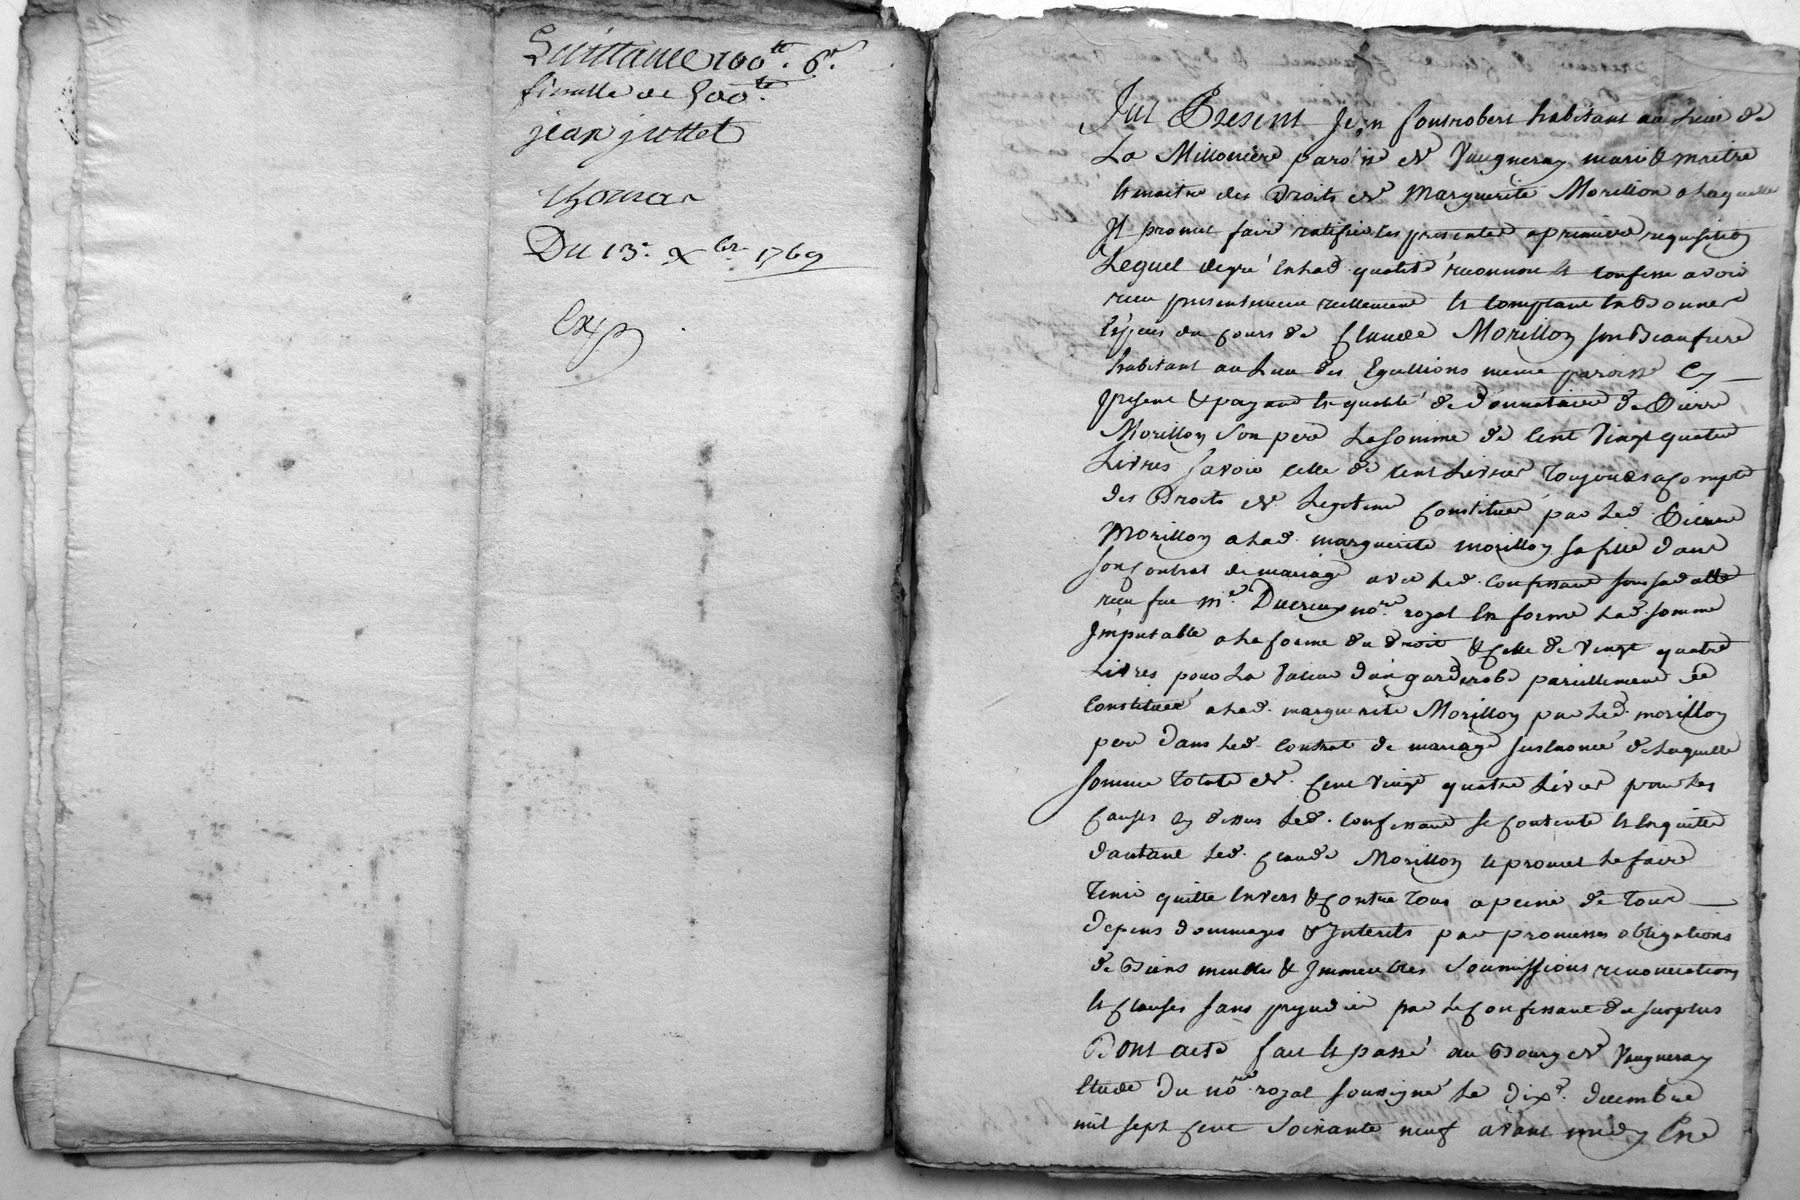 Quittance 100tt. 6s.
finalle de 500tt
jean juttet
thomas
Du 13e. xbre 1769
Exp
Fut Present Jean fontrobert habitant au Lieu de
La Milloniere paroisse de Vaugneray mari & maitre
& maitre des Droits de Marguerite Morillon a Laquelle
Il promet faire ratifier les presentes a premiere requisition
Lequel degré en lad. qualité reconnu et confesse avoir
receu presentement reellement et comptant en Bonnes
Especes du Cours de Claude Morillon son Beaufrere
habitant au Lieu des Eguillions meme paroisse Cy
present & payant en qualité de donnataire de Pierre
Morillon son pere La somme de Cent Vingt quatre
Livres savoir celle de cent Livres Toujours a Compte
des Droits de Legitime Constitués par Led. Pierre
Morillon a Lad. marguerite morillon sa fille dans
son Contrat de mariage avec Led. Confessant
receu par Me. Ducreux nore. royal en forme Lad. somme
Imputable a La forme du droit & Celle de Vingt quatre
Livres pour La Valeur d'un garderobe pareillement
Constitué a Lad. marguerite Morillon par Led. morillon
pere dans Led. Contrat de mariage susEnoncé de Laquelle
somme Totale de Cent Vingt quatre Livres pour Les
Causes cy dessus Led. Confessant se Contente et En quitte
d'autant Led. Claude Morillon et promet Le faire
Tenir quitte Envers & Contre Tous a peine de Tous
depens dommages & Interets par promesses obligations
de Biens meubles & Immeubles soumissions renonciations
et Clauses sans prejudice par Le Confessant du surplus
Dont acte fait et passé au Bourg de Vaugneray
Etude du nore. royal soussigné Le dixe. decembre
mil sept Cent soixante neuf avant midy En